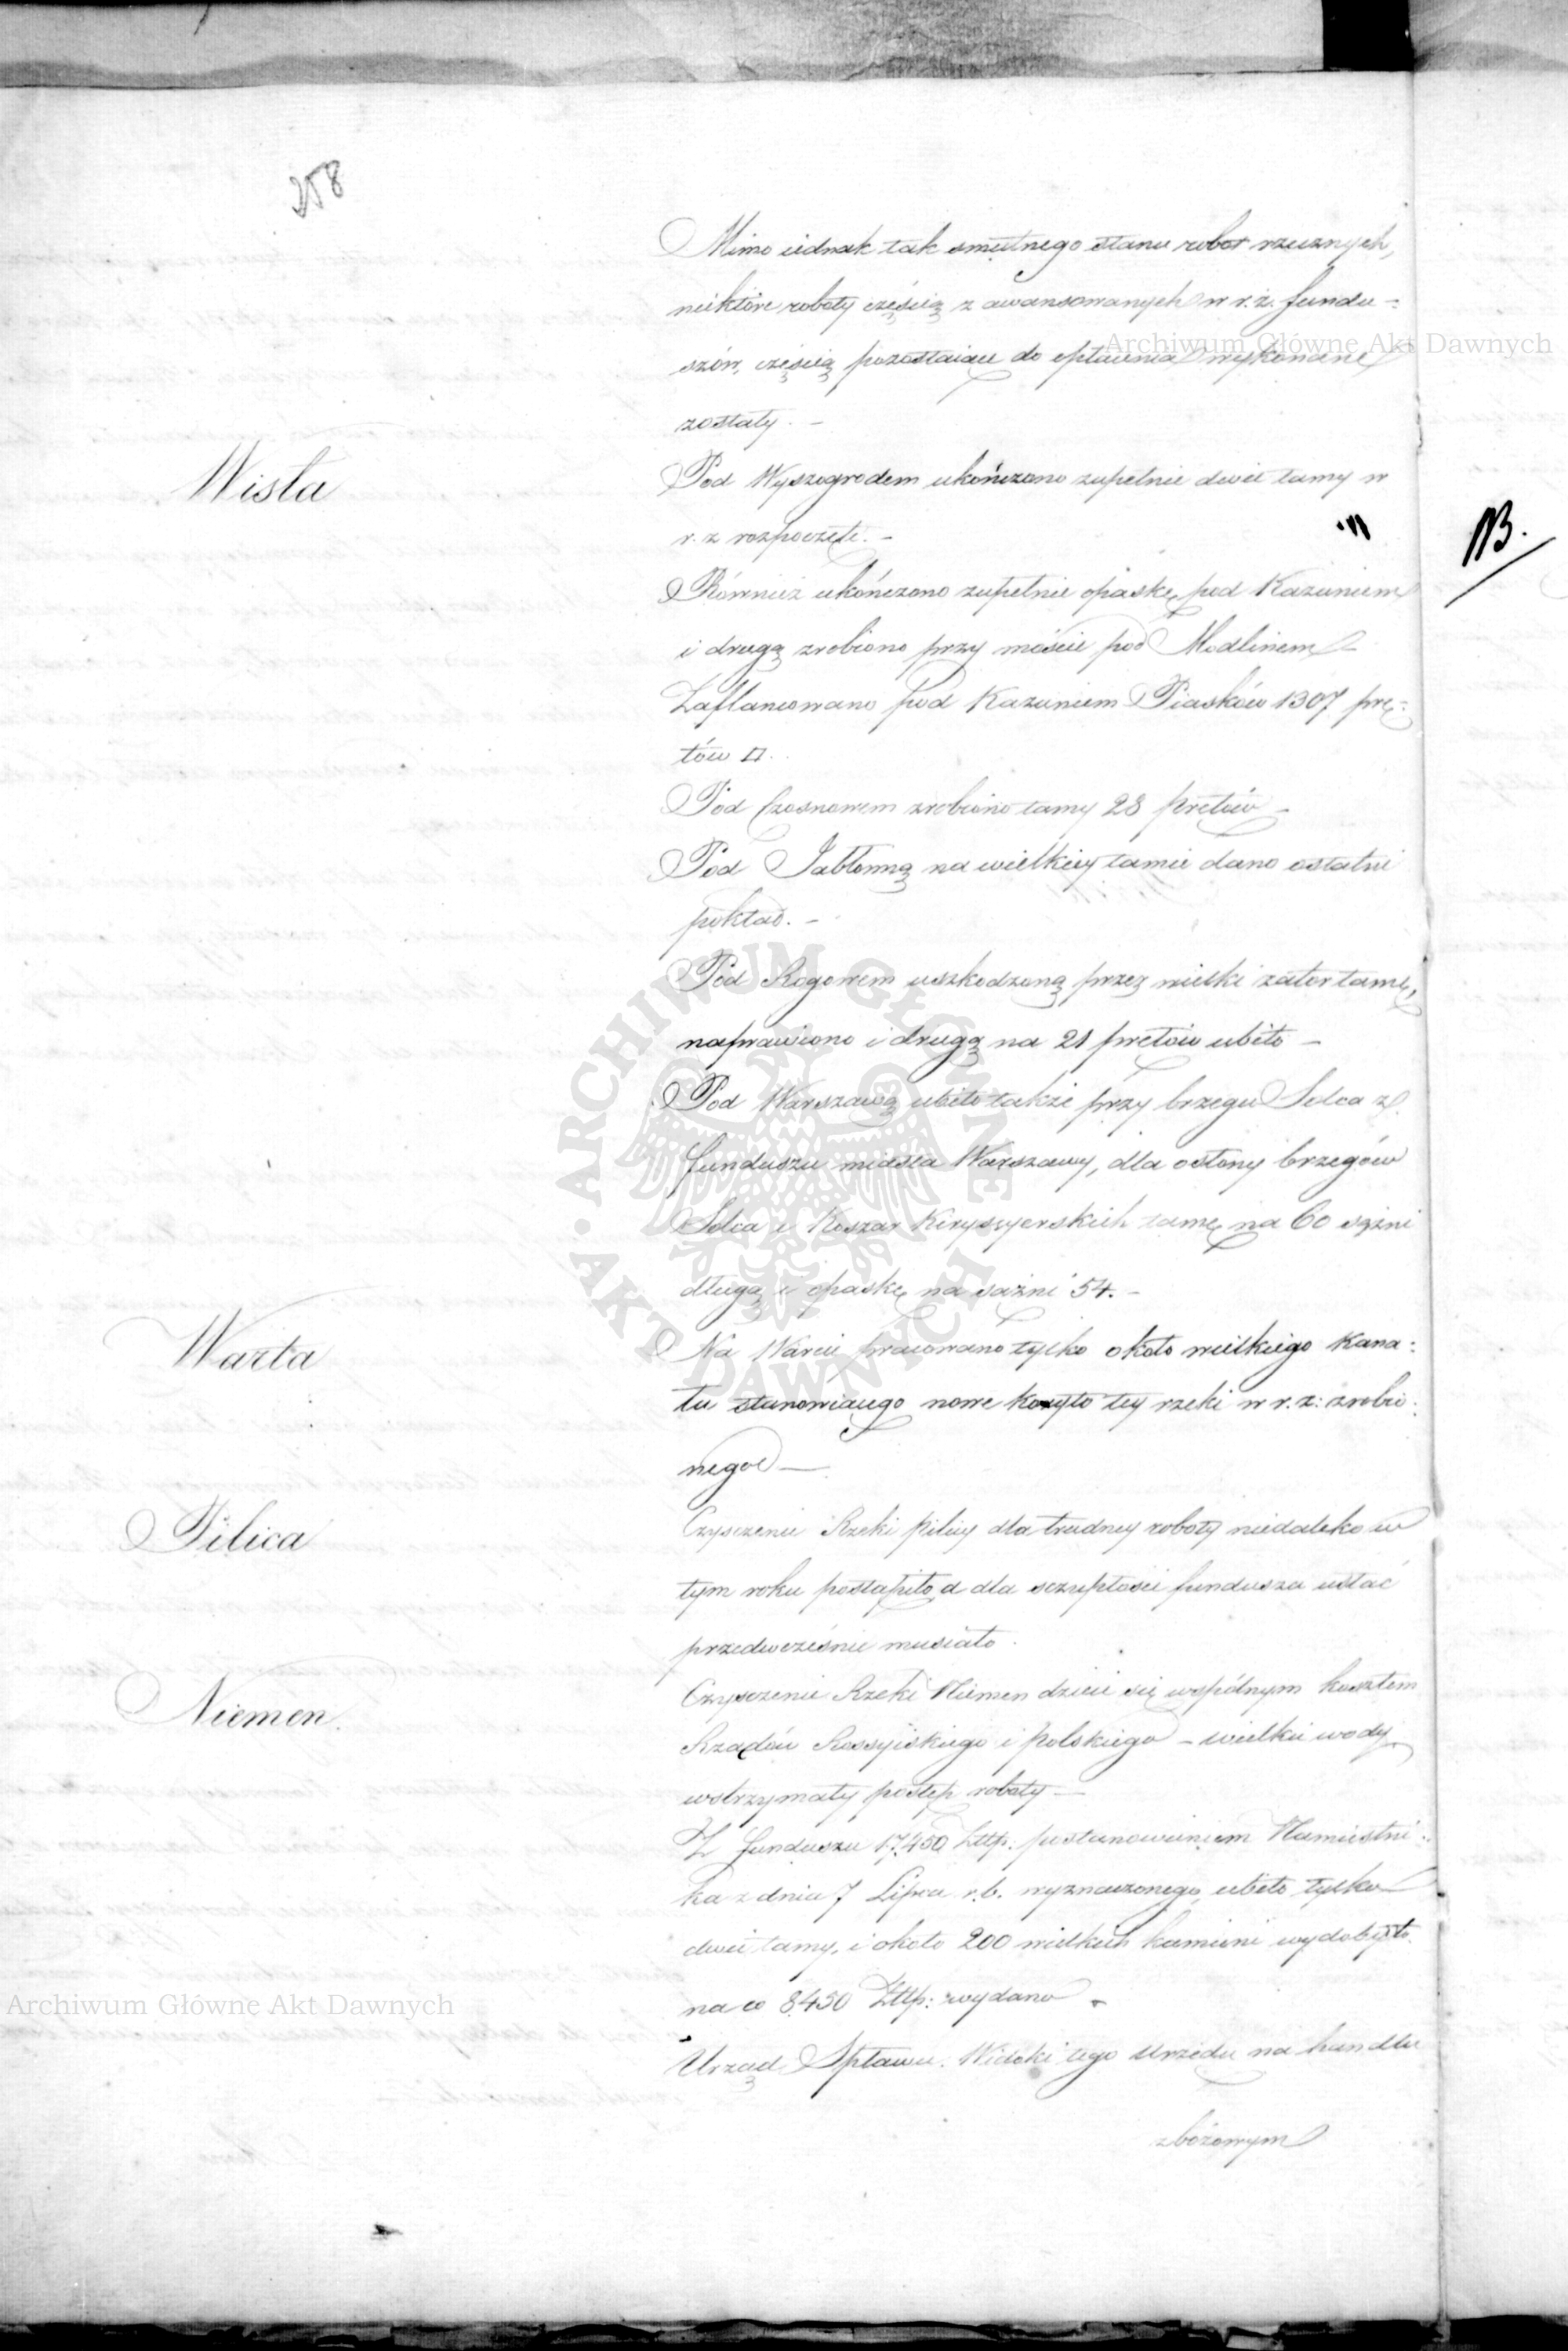 258
Mimo iednak tak smutnego stanu robot rzecznych,
niektóre roboty częścią z awansowanych w r. z. fundu-
szów, częścią pozostaiące do opłacenia wykonane
zostały. -
Wisła
Pod Wyszogrodem ukończono zupełnie dwie tamy w
r. z rozpoczęte. -
B.
Również ukończono zupełnie opaskę pod Kazuniem
i drugą zrobiono przy moście pod Modlinem
Zaflancowano pod Kazuniem Piasków 1307 prę-
tów □.
Pod Czosnowem zrobiono tamy 28 prętów -
Pod Jabłonną na wielkiey tamie dano ostatni
pokład. -
Pod Rogowem uszkodzoną przez wielki zator tamę,
naprawiono i drugą na 21 prętów ubito -
Pod Warszawą ubito także przy brzegu Solca z
funduszu miasta Warszawy, dla osłony brzegów
Solca i Koszar Kirysyerskich tamę na 60 sążni
długą i opaskę na sążni 54. -
Warta
Na Warcie pracowano tylko około wielkiego Kana:
łu stanowiącego nowe koryto tey rzeki w r. z: zrobio:
nego -
Pilica
Czyszczenie Rzeki Pilicy dla trudney roboty niedaleko w
tym roku postąpiło, a dla szczupłości funduszu ustać
przedwcześnie musiało.
Niemen.
Czyszczenie Rzeki Niemen dzieie się wspólnym kosztem
Rządów Rossyiskiego i polskiego - wielkie wody
wstrzymały postęp roboty -
Z funduszu 17,450 Złtp. postanowieniem Namiestni:
ka z dnia 7 Lipca r. b. wyznaczonego, ubito tylko
dwie tamy, i około 200 wielkich kamieni wydobyto.
na co 8450 Złtp: wydano -
Urząd Spławu. Widoki tego Urzędu na handlu
zbożowym
Archiwum Główne Akt Dawnych
Archiwum Główne Akt Dawnych
ARCHIWUM GŁÓWNE AKT DAWNYCH